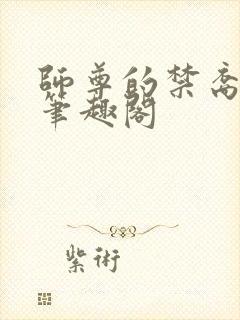 師尊的禁脔
筆趣閣
紫術